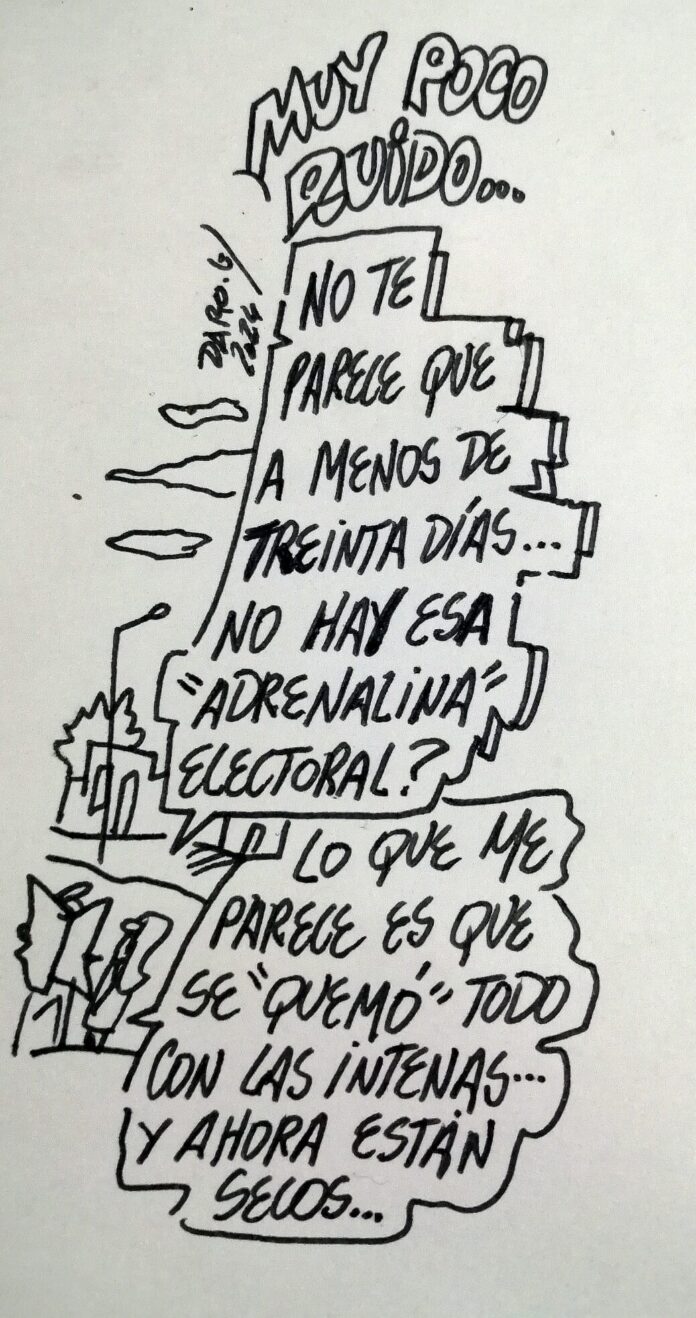 MUY POCO
RUiDO...
DARO.G/
2024
NO TE
PARECE QUE
A MENOS DE
TREiNTA DÍAS...
NO HAY ESA
"ADRENALiNA"
ELECTORAL?
LO QUE ME
PARECE ES QUE
SE "QUEMÓ" TODO
CON LAS iNTENAS...
Y AHORA ESTÁN
SECOS...